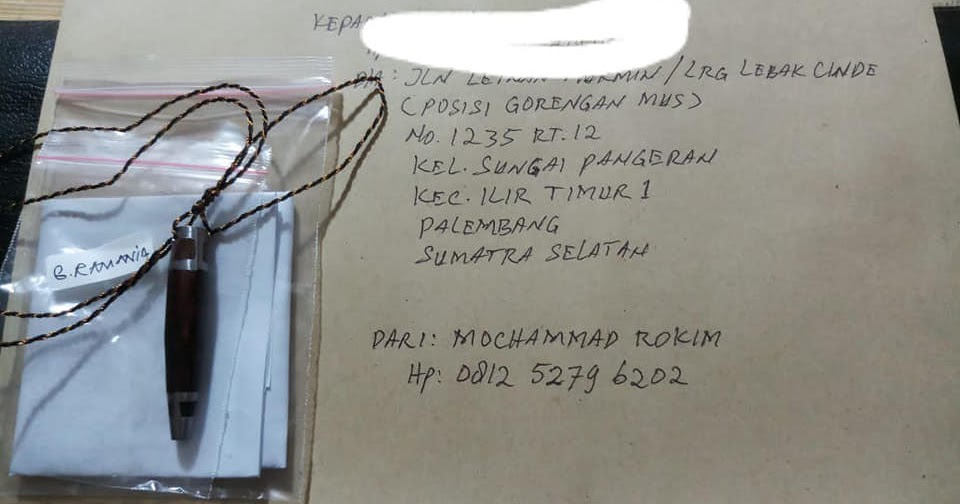 KEPA
DIA: JLN LETNAN MURMIN / LRG LEBAK CINDE
(POSISI GORENGAN MUS)
NO. 1235 RT. 12
KEL. SUNGAI PANGERAN
KEC. ILIR TIMUR 1
PALEMBANG
SUMATRA SELATAN
B. RAMANIA
DARI: MOCHAMMAD ROKIM
Hp: 0812 5279 6202